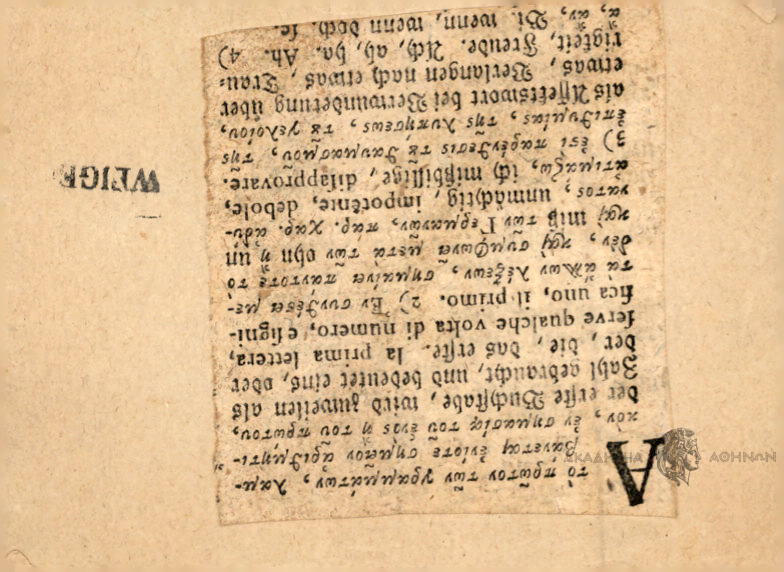 Α τὸ πρῶτον τῶν γραμμάτων, λαμ-
βάνεται ἐνίοτε σημεῖον ἀριθμητι-
κὸν, ἐν σημασίᾳ τοῦ ἑνὸς ἢ τοῦ πρώτου,
der erſte Buchſtabe, wird zuweilen als
Zahl gebraucht, und bedeutet eins, oder
der, die, das erſte. la prima lettera,
ſerve qualche volta di numero, e ſigni-
fica uno, il primo. 2) Ἐν συνθέσει με-
τὰ ἄλλων λέξεων, σημαίνει πάντοτε τὸ
δὲν, καὶ συμφωνεῖ μετὰ τῶν ohn ἢ un
καὶ miß τῶν Γερμανῶν, πάρ. χάρ. ἀδυ-
νατος, unmächtig, impotente, debole,
ατιμάζω, ich mißbillige, diſapprovare.
3) ἐστὶ παρένθεσις τοῦ θαυμασμοῦ, τῆς
ἐπιθυμίας, τῆς λυπήσεως, τοῦ γελοίου,
als Affektswort bei Verwunderung über
etwas, Verlangen nach etwas, Trau-
rigkeit, Freude. Ach, ah, ha. Ah. 4)
wenn, wenn doch. ſe.
WEIGE
ΑΚΑΔΗΜΙΑ ΑΘΗΝΩΝ